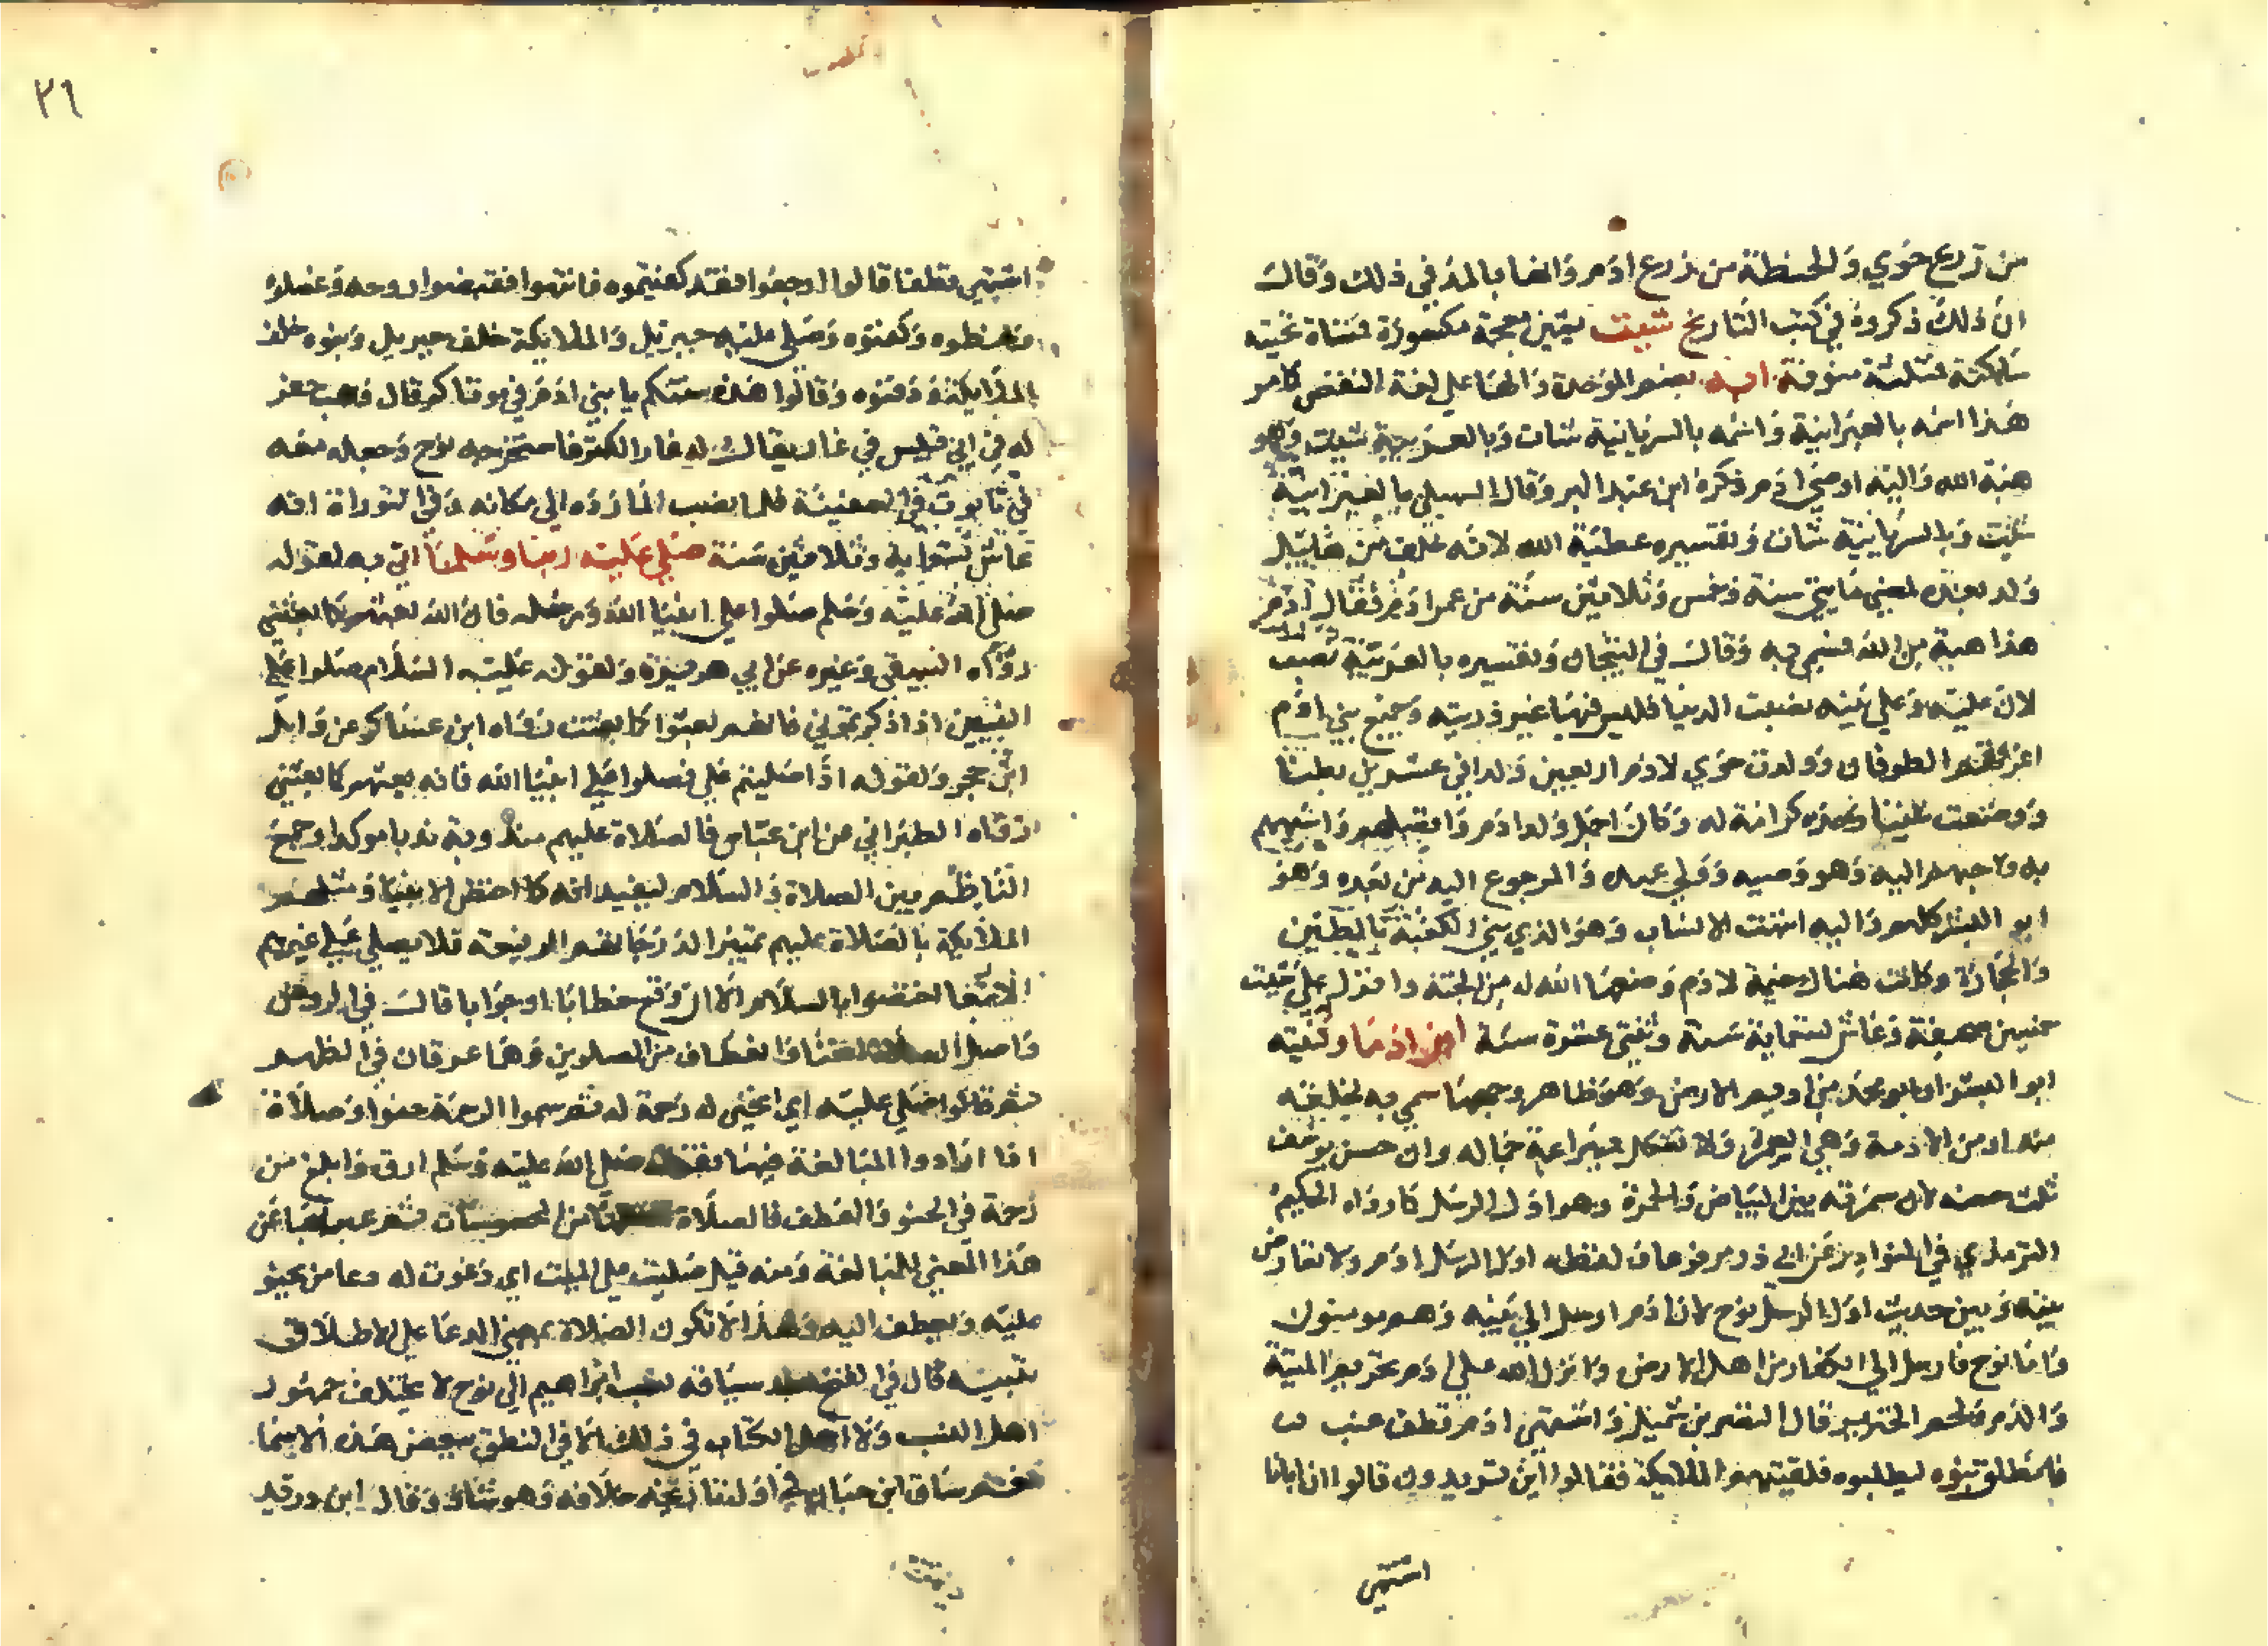 من زرع حوي والحنطة من زرع ادم والفا بالمد في ذلك وقال
ان ذلك ذكروه في كتب التاريخ شيث بشين معجمة مكسورة فمثناة تحتية
ساكنة فمثلثة منونة ابه بضم الموحدة والها على لغة النقص كما مر
هذا اسمه بالعبرانية واسمه بالسريانية شات وبالعربية شيث وهو
هبة الله واليه اوصي ادم ذكره ابن عبد البر وقال السهيلي بالعبرانية
شيث وبالسريانية شان وتفسيره عطية الله لانه خلف من هابيل
ولد بعده لمضي مايتي سنة وخمس وثلاثين سنة من عمر ادم فقال ادم
هذا هبة من الله فسمي به وقال في التيجان وتفسيره بالعربية نصب
لان عليه وعلي بنيه نصبت الدنيا فليس فيها غير ذريته وجميع بني ادم
اغرقهم الطوفان وولدت حوي لادم اربعين ولدا في عشرين بطنا
ووضعت شيثا وحده كرامة له وكان اجمل ولد ادم وافضلهم واشبههم
به واحبهم اليه وهو وصيه وولي عهده والمرجوع اليه من بعده وهو
ابو البشر كلهم واليه انتهت الانساب وهو الذي بني الكعبة بالطين
والحجارة وكانت هناك خيمة لادم وضعها الله له من الجنة وانزل علي شيث
خمسين صحيفة وعاش تسعماية سنة وثنتي عشرة سنة ابن ادما وكنيته
ابو البشر وابو محمد من اديم الارض وهو ظاهر وجهها سمي به لخلقه
منه او من الادمة وهي السمرة ولا تشكل ببراعة جماله وان حسن يوسف
ثلث حسنه لان سمرته بين البياض والحمرة وهو اول الرسل كما رواه الحكيم
الترمذي في النوادر عن ابي ذر مرفوعا في لفظه اول الرسل ادم ولا تعارض
بينه وبين حديث اول الرسل نوح لان ادم ارسل الي بنيه وهم مومنون
واما نوح فارسل الي الكفار من اهل الارض وانزل الله علي ادم تحريم الميتة
والدم ولحم الخنزير قال النضر بن شميل واشتهي ادم قطف عنب
فانطلق بنوه ليطلبوه فلقيتهم الملايكة فقالوا اين تريدون قالوا ان ابانا
اشتهي
٢٦
اشتهي قطفا قالوا ارجعوا فقد كفيتموه فانتهوا فقبضوا روحه وغسلوه
وحنطوه وكفنوه وصلي عليه جبريل والملايكة خلف جبريل وبنوه خلف
الملايكة ودفنوه وقالوا هذه سنتكم يا بني ادم في موتاكم قال وهب حفر
له في ابي قبيس في غار يقال له غار الكنز فاستخرجه نوح وجعله معه
في تابوت في السفينة فلما نضب الما رده الي مكانه وفي التوراة انه
عاش تسعماية وثلاثين سنة صلي عليه ربنا وسلما اتي به لقوله
صلي الله عليه وسلم صلوا علي انبيا الله ورسله فان الله بعثهم كما بعثني
رواه البيهقي وغيره عن ابي هريرة ولقوله عليه السلام صلوا علي
النبيين اذا ذكرتموني فانهم بعثوا كما بعثت رواه ابن عساكر عن وايل
ابن حجر ولقوله اذا صليتم علي فصلوا علي انبيا الله فانه بعثهم كما بعثني
رواه الطبراني عن ابن عباس فالصلاة عليهم مندوبة ندبا موكدا وجمع
الناظم بين الصلاة والسلام ليفيد انه كما اختص الانبيا ومثلهم
الملايكة بالصلاة عليهم تمييزا لدرجاتهم الرفيعة فلا يصلي علي غيرهم
الا تبعا اختصوا بالسلام الا ان وقع خطابا او جوابا قال في الروض
واصل الصلاة انحنا وانعطاف من الصلوين وهما عرقان في الظهر
ثم قالوا صلي عليه اي انحني له رحمة له ثم سموا الرحمة حنوا وصلاة
اذا ارادوا المبالغة فيها فقولك صلي الله عليه وسلم ارق وابلغ من
رحمة في الحنو والعطف فالصلاة اصلها من المحسوسات ثم عبر بها عن
هذا المعني للمبالغة ومنه قيل صليت علي الميت اي دعوت له دعا من يحنو
عليه ويعطف اليه ولهذا لا تكون الصلاة بمعني الدعا علي الاطلاق
تنبيه قال في الفتح بعد سياقه نسب ابراهيم الي نوح لا يختلف جمهور
اهل النسب ولا اهل الكتاب في ذلك الا في النطق ببعض هذه الاسما
نعم ساق ابن حبان في اول تاريخه خلافه وهو شاذ وقال ابن دريد